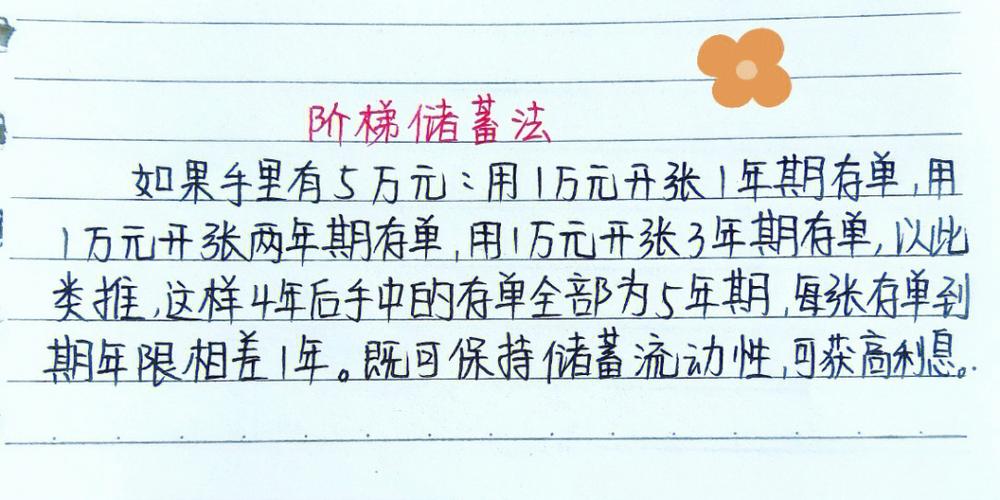 阶梯储蓄法
如果手里有5万元:用1万元开张1年期存单,用
1万元开张两年期存单,用1万元开张3年期存单,以此
类推,这样4年后手中的存单全部为5年期,每张存单到
期年限相差1年。既可保持储蓄流动性,可获高利息。